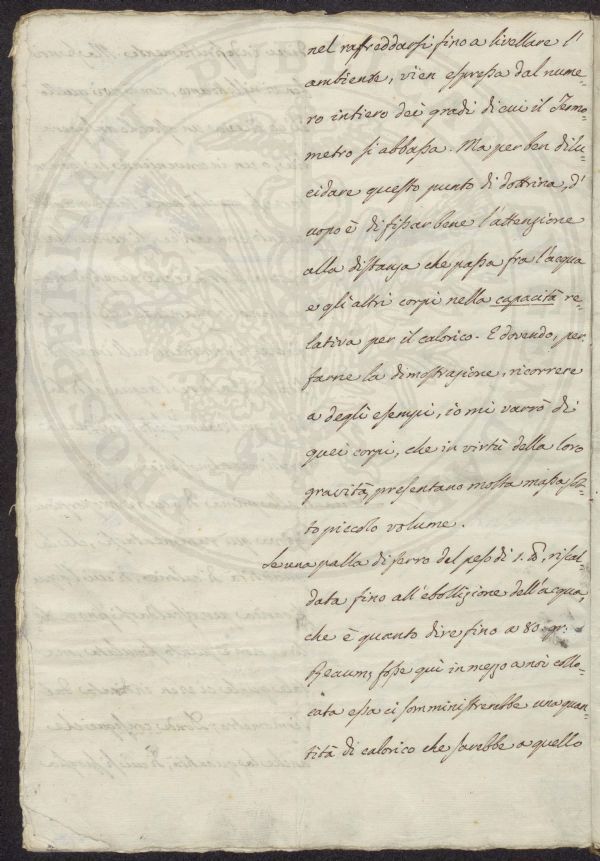 nel raffreddarsi fino a livellare l'
ambiente, vien espressa dal nume-
ro intiero dei gradi di cui il Termo-
metro si abbassa. Ma per ben dilu-
cidare questo punto di dottrina, d'
uopo è di fissar bene l'attenzione
alla distanza che passa fra l'acqua
e gli altri corpi nella capacità re-
lativa per il calorico. E dovendo, per
farne la dimostrazione, ricorrere
a degli esempi, io mi varrò di
quei corpi, che in virtù della loro
gravità, presentano molta massa sot-
to piccolo volume.
Se una palla di ferro del peso di 1. ℔, riscal-
data fino all'ebollizione dell'acqua,
che è quanto dire fino a 80. gr:
Reaum; fosse quì in mezzo a noi collo-
cata essa ci somministrerebbe una quan-
tità di calorico che sarebbe a quello